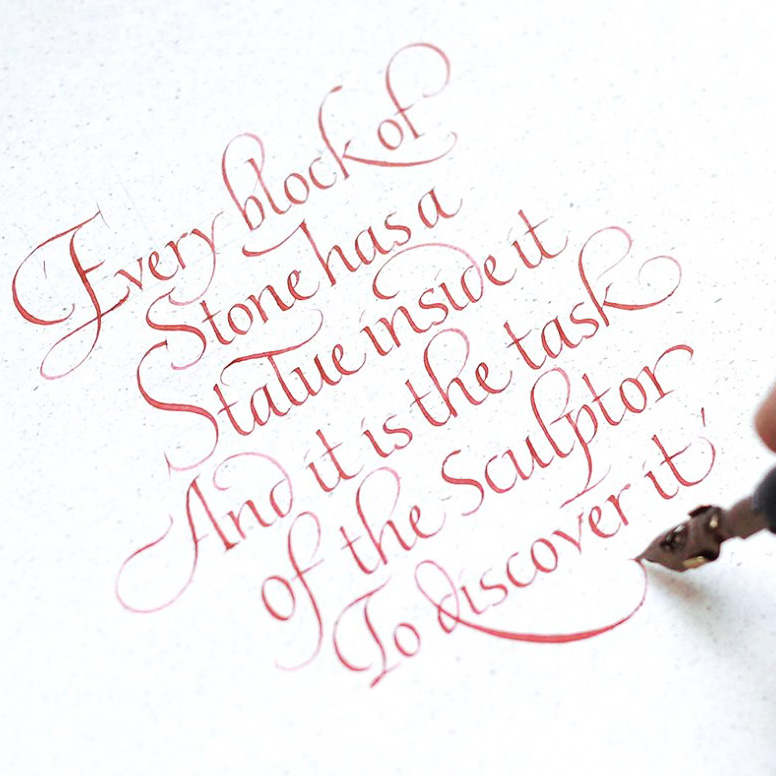 'Every block of
Stone has a
Statue inside it
And it is the task
of the Sculptor
To discover it'